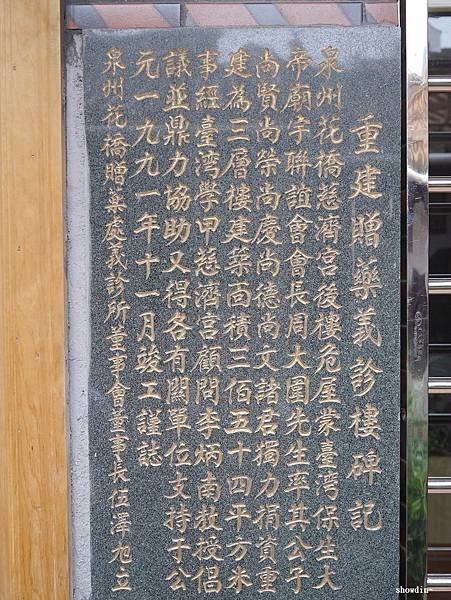 重建贈藥義診樓碑記
泉州花橋慈濟宮後樓危屋蒙臺灣保生大
帝廟宇聯誼會會長周大圍先生率其公子
尚賢尚榮尚慶尚德尚文諸君獨力捐資重
建為三層樓建築面積三佰五十四平方米
事經臺灣學甲慈濟宮顧問李炳南教授倡
議並鼎力協助又得各有關單位支持于公
元一九九一年十一月竣工謹誌
泉州花橋贈藥處義診所董事會董事長伍澤旭立
showdin